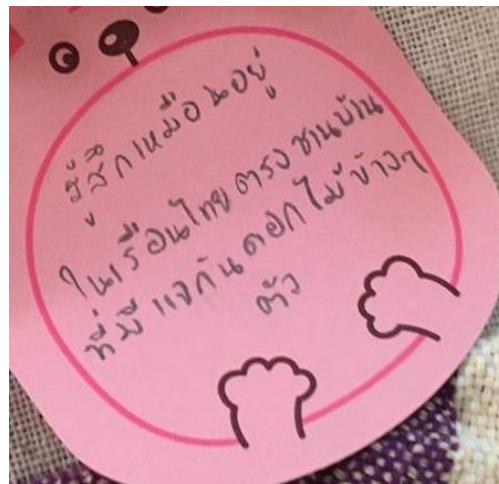 รู้สึกเหมือนอยู่
ในเรือนไทยตรงชานบ้าน
ที่มีแจกันดอกไม้ข้างๆ
ตัว